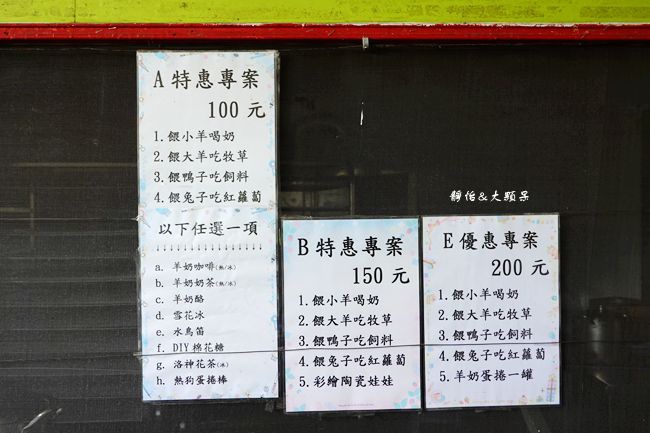 A特惠專案
100元
1.餵小羊喝奶
2.餵大羊吃牧草
3.餵鴨子吃飼料
4.餵兔子吃紅蘿蔔
以下任選一項
↓↓↓↓↓↓↓↓↓↓↓↓↓
a. 羊奶咖啡(熱/冰)
b. 羊奶奶茶(熱/冰)
c. 羊奶酪
d. 雪花冰
e. 水鳥笛
f. DIY棉花糖
g. 洛神花茶(冰)
h. 熱狗蛋捲棒
B特惠專案
150元
1.餵小羊喝奶
2.餵大羊吃牧草
3.餵鴨子吃飼料
4.餵兔子吃紅蘿蔔
5.彩繪陶瓷娃娃
靜怡&大顆呆
E優惠專案
200元
1.餵小羊喝奶
2.餵大羊吃牧草
3.餵鴨子吃飼料
4.餵兔子吃紅蘿蔔
5.羊奶蛋捲一罐